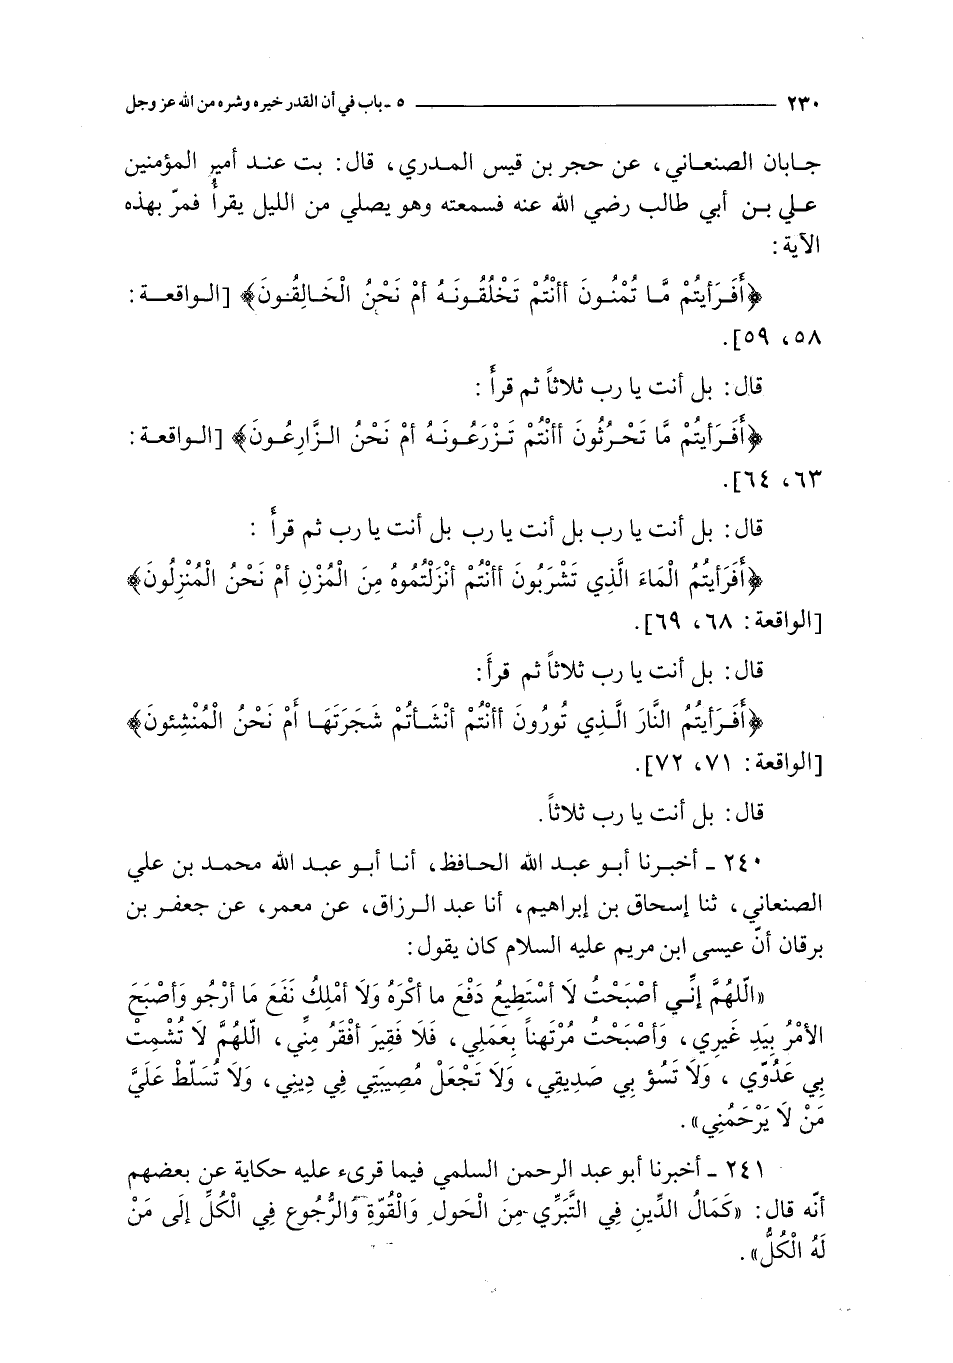 ٢٣٠ ــــــــــــــــــــــــــــــ ٥ ـ باب في أن القدر خيره وشره من الله عز وجل
جابان الصنعاني، عن حجر بن قيس المدري، قال: بت عند أمير المؤمنين
علي بن أبي طالب رضي الله عنه فسمعته وهو يصلي من الليل يقرأُ فمرّ بهذه
الآية:
﴿أَفَرَأيتُمْ مَّا تُمْنُونَ أأنْتُمْ تَخْلُقُونَهُ أمْ نَحْنُ الْخَالِقُونَ﴾ [الواقعة:
٥٨، ٥٩].
قال: بل أنت يا رب ثلاثاً ثم قرأَ:
﴿أَفَرَأيتُمْ مَّا تَحْرُثُونَ أأنْتُمْ تَزْرَعُونَهُ أمْ نَحْنُ الزَّارِعُونَ﴾ [الواقعة:
٦٣، ٦٤].
قال: بل أنت يا رب بل أنت يا رب بل أنت يا رب ثم قرأَ :
﴿أَفَرَأيتُمُ الْمَاءَ الَّذِي تَشْرَبُونَ أأنْتُمْ أنْزَلْتُمُوهُ مِنَ الْمُزْنِ أمْ نَحْنُ الْمُنْزِلُونَ﴾
[الواقعة: ٦٨، ٦٩].
قال: بل أنت يا رب ثلاثاً ثم قرأَ:
﴿أَفَرَأيتُمُ النَّارَ الَّذِي تُورُونَ أأنْتُمْ أنْشَأتُمْ شَجَرَتَهَا أَمْ نَحْنُ الْمُنْشِئونَ﴾
[الواقعة: ٧١، ٧٢].
قال: بل أنت يا رب ثلاثاً.
٢٤٠ ـ أخبرنا أبو عبد الله الحافظ، أنا أبو عبد الله محمد بن علي
الصنعاني، ثنا إسحاق بن إبراهيم، أنا عبد الرزاق، عن معمر، عن جعفر بن
برقان أنّ عيسى ابن مريم عليه السلام كان يقول:
«الّلهُمَّ إنّي أصْبَحْتُ لَا أسْتَطِيعُ دَفْعَ ما أكْرَهُ وَلَا أمْلِكُ نَفَعَ مَا أرْجُو وَأصْبَحَ
الأمْرُ بِيَدِ غَيرِي، وَأصْبَحْتُ مُرْتَهناً بِعَمَلِي، فَلَا فَقِيرَ أفْقَرُ مِنِّي، الّلهُمَّ لَا تُشْمِتْ
بِي عَدُوّي ، وَلَا تَسُؤ بي صَدِيقِي، وَلَا تَجْعَلْ مُصِيبَتِي فِي دِينِي، وَلَا تُسَلّطْ عَلَيَّ
مَنْ لَا يَرْحَمُنِي».
٢٤١ ـ أخبرنا أبو عبد الرحمن السلمي فيما قرىء عليه حكاية عن بعضهم
أنّه قال: «كَمَالُ الدِّينِ فِي التَّبَرِّي مِنَ الْحَولِ وَالْقُوّةِ وَالرُّجُوعِ فِي الْكُلِّ إلَى مَنْ
لَهُ الْكُلُّ».